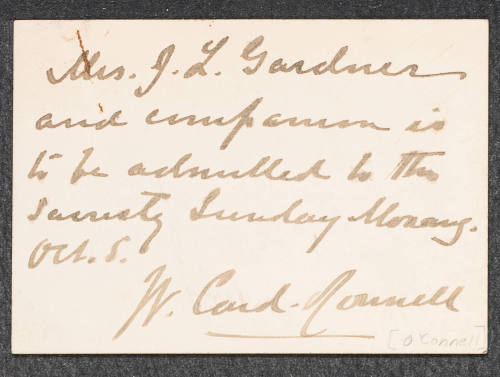 Mrs. J. L. Gardner
and companion is
to be admitted to the
Sunday Morning.
Oct. 5.
W. Card. O'Connell
[O'Connell]